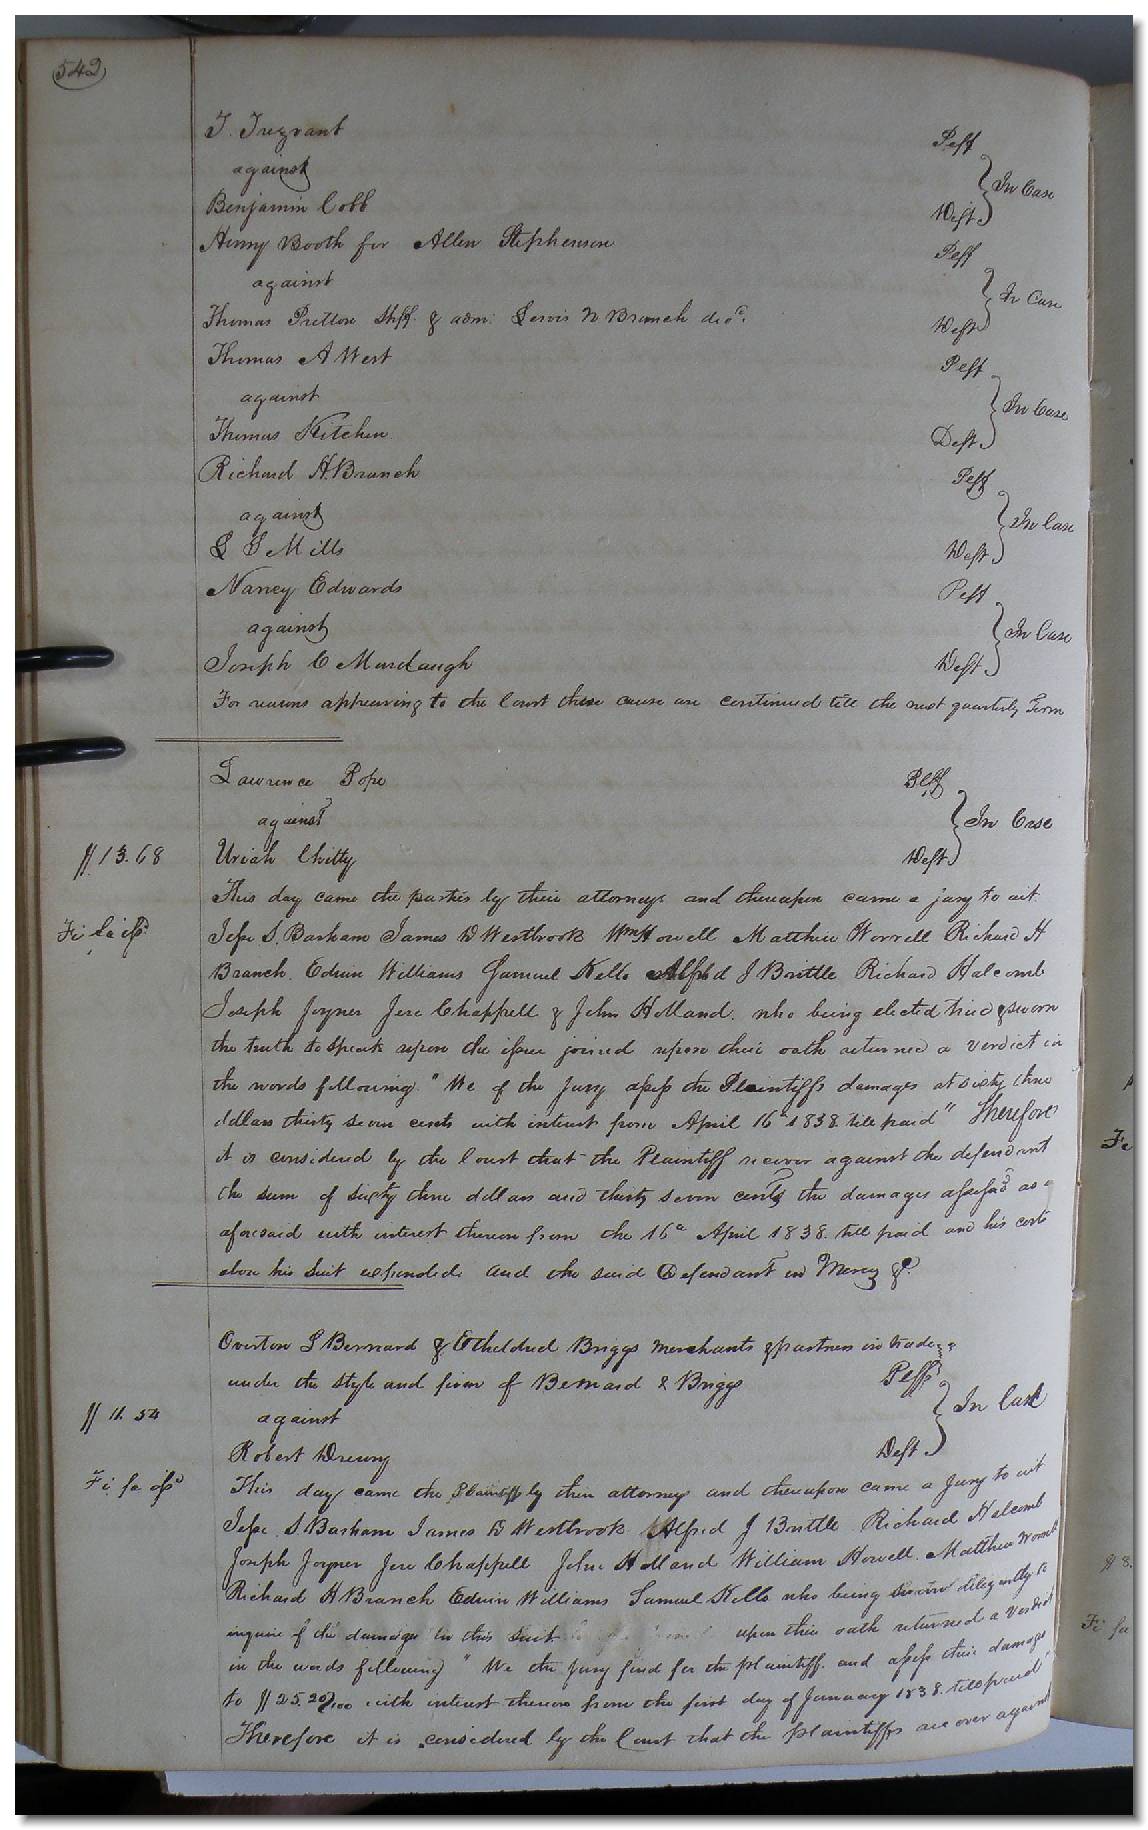 542
T. Trezvant Plff
against } In Case
Benjamin Cobb Deft
Henry Booth for Allen Stephenson Plff
against } In Case
Thomas Pretlow Shff. & adm. Lewis N Branch decd. Deft
Thomas A West Plff
against } In Case
Thomas Kitchen Deft
Richard H. Branch Plff
against } In Case
S S Mills Deft
Nancy Edwards Plff
against } In Case
Joseph C Murdaugh Deft
For reasons appearing to the Court these cause are continued till the next quarterly Term
Lawrence Pope Plff
against } In Case
$13.68 Uriah Chitty Deft
This day came the parties by their attorneys and thereupon came a jury to wit.
Fi fa isd Jesse S. Barham James D Westbrook Wm Howell Matthew Worrell Richard H
Branch. Edwin Williams Samuel Kello Alfred J Brittle Richard Halcomb
Joseph Joyner Jere Chappell & John Holland. who being elected tried & sworn
the truth to speak upon the issue joined upon their oath returned a verdict in
the words following. "We of the Jury assess the Plaintiffs damages at sixty three
dollars thirty seven cents with interest from April 16th 1838. till paid" Therefore
it is considered by the Court that the Plaintiff recover against the defendant
the sum of sixty three dollars and thirty seven cents the damages assessed as
aforesaid with interest thereon from the 16th April 1838. till paid and his costs
his Suit expended. and the said Defendant in Mercy &c.
Overton S Bernard & Etheldred Briggs merchants & partners in trade
under the style and firm of Bernard & Briggs Plffs
$11.54 against } In Case
Robert Drewry Deft
Fi fa isd This day came the Plaintiffs by their attorney and thereupon came a Jury to wit
Jesse S. Barham James D Westbrook Alfred J Brittle Richard Halcomb
Joseph Joyner Jere Chappell John Holland William Howell. Matthew Worrell
Richard H Branch Edwin Williams Samuel Kello who being sworn diligently to
inquire of the damage in this Suit upon their oath returned a Verdict
in the words following "We the Jury find for the plaintiff. and assess their damage
to $25.20/100 with interest thereon from the first day of January 1838. till paid"
Therefore it is considered by the Court that the plaintiffs recover against